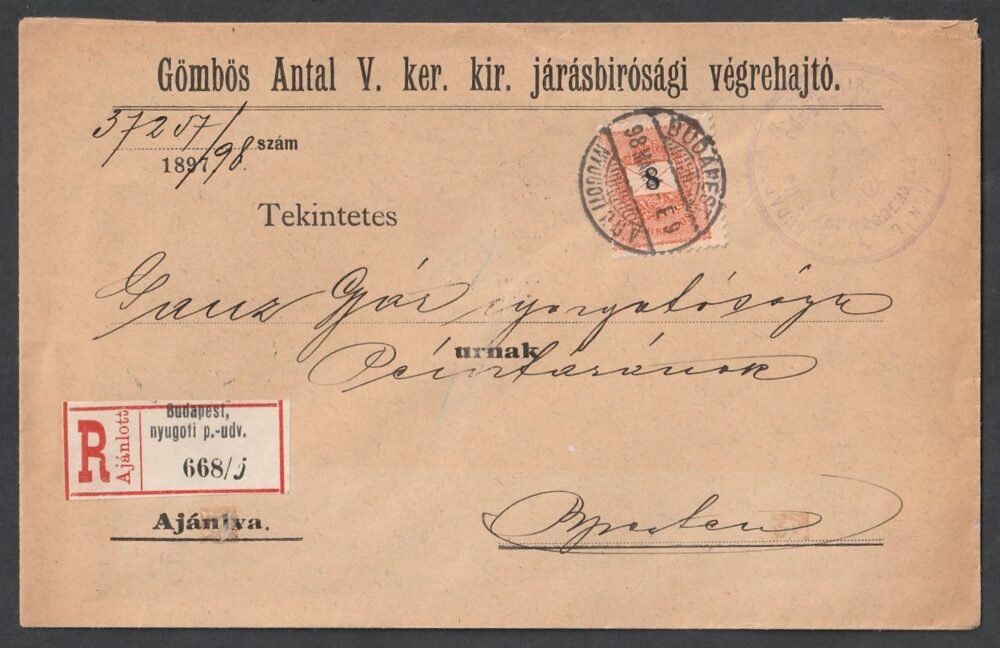 Gömbös Antal V. ker. kir. járásbirósági végrehajtó.
37257/98. szám
1897
BUDAPEST
98 M
É 9
8
Tekintetes
Ganz Gyár igazgatósága
urnak
Pénztárának
R Ajánlott
Budapest,
nyugoti p.-udv.
668/j
Ajánlva.
Bpesten